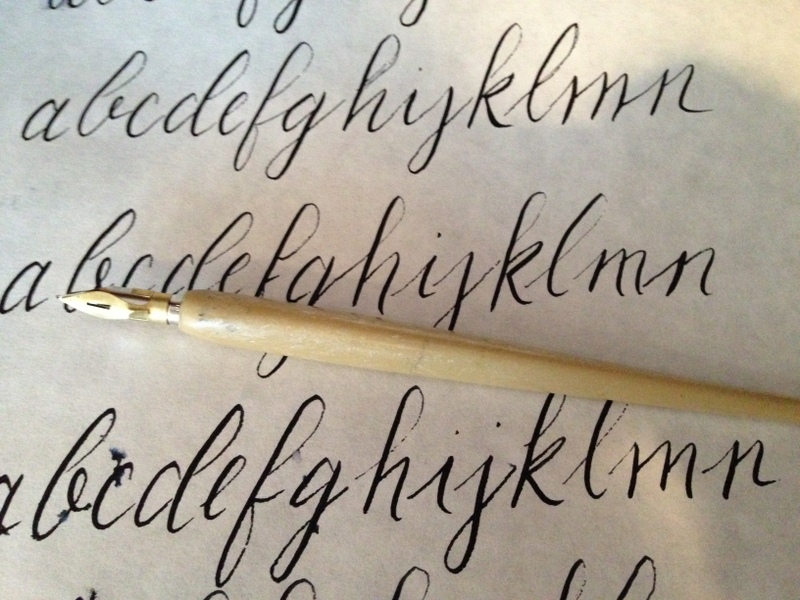 abcdefghijklmn
abcdefghijklmn
abcdefghijklmn